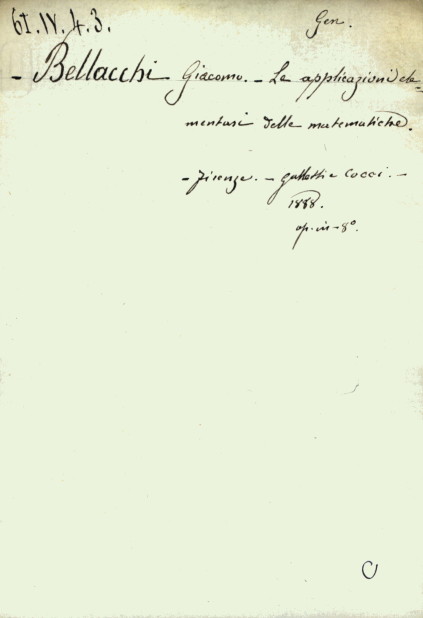 6I.IV.4.3.
Gen.
- Bellacchi Giacomo. - Le applicazioni ele=
mentari delle matematiche.
- Firenze. - Galletti e Cocci. -
1888.
op. in - 8°.
C